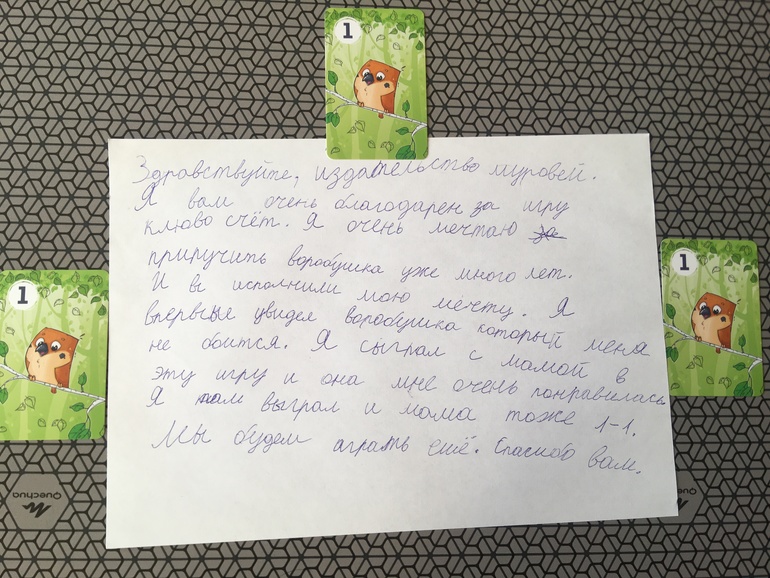 1
Здравствуйте, издательство муровей.
Я вам очень благодарен за игру
клюво счёт. Я очень мечтаю за
приручить воробушка уже много лет.
И вы исполнили мою мечту. Я
впервые увидел воробушка который меня
не боится. Я сыграл с мамой в
эту игру и она мне очень понравилась
Я выграл и мама тоже 1-1.
Мы будем аграть ещё. Спасибо вам.
1
1
Quechua